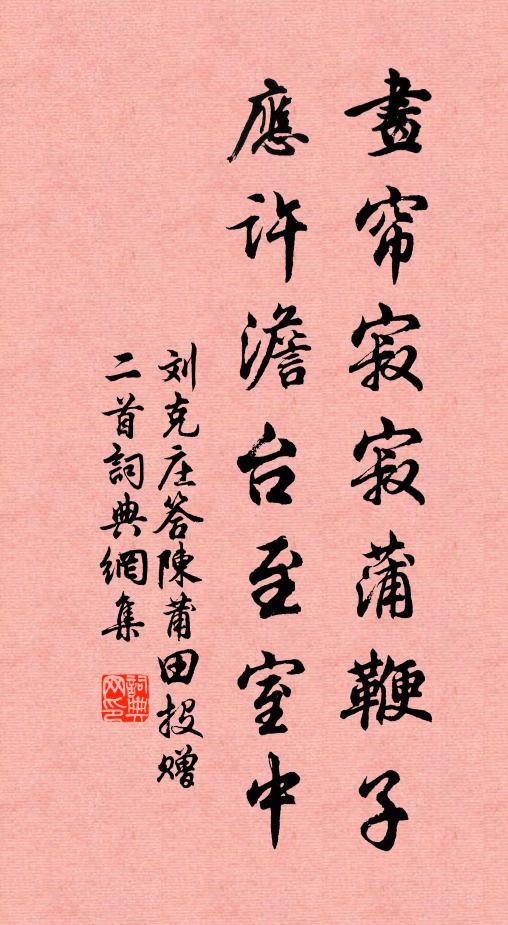 晝帘寂寂蒲鞭子
應許澹台至室中
刘克庄答陳莆田投贈
二首詞典網集
詞典网印